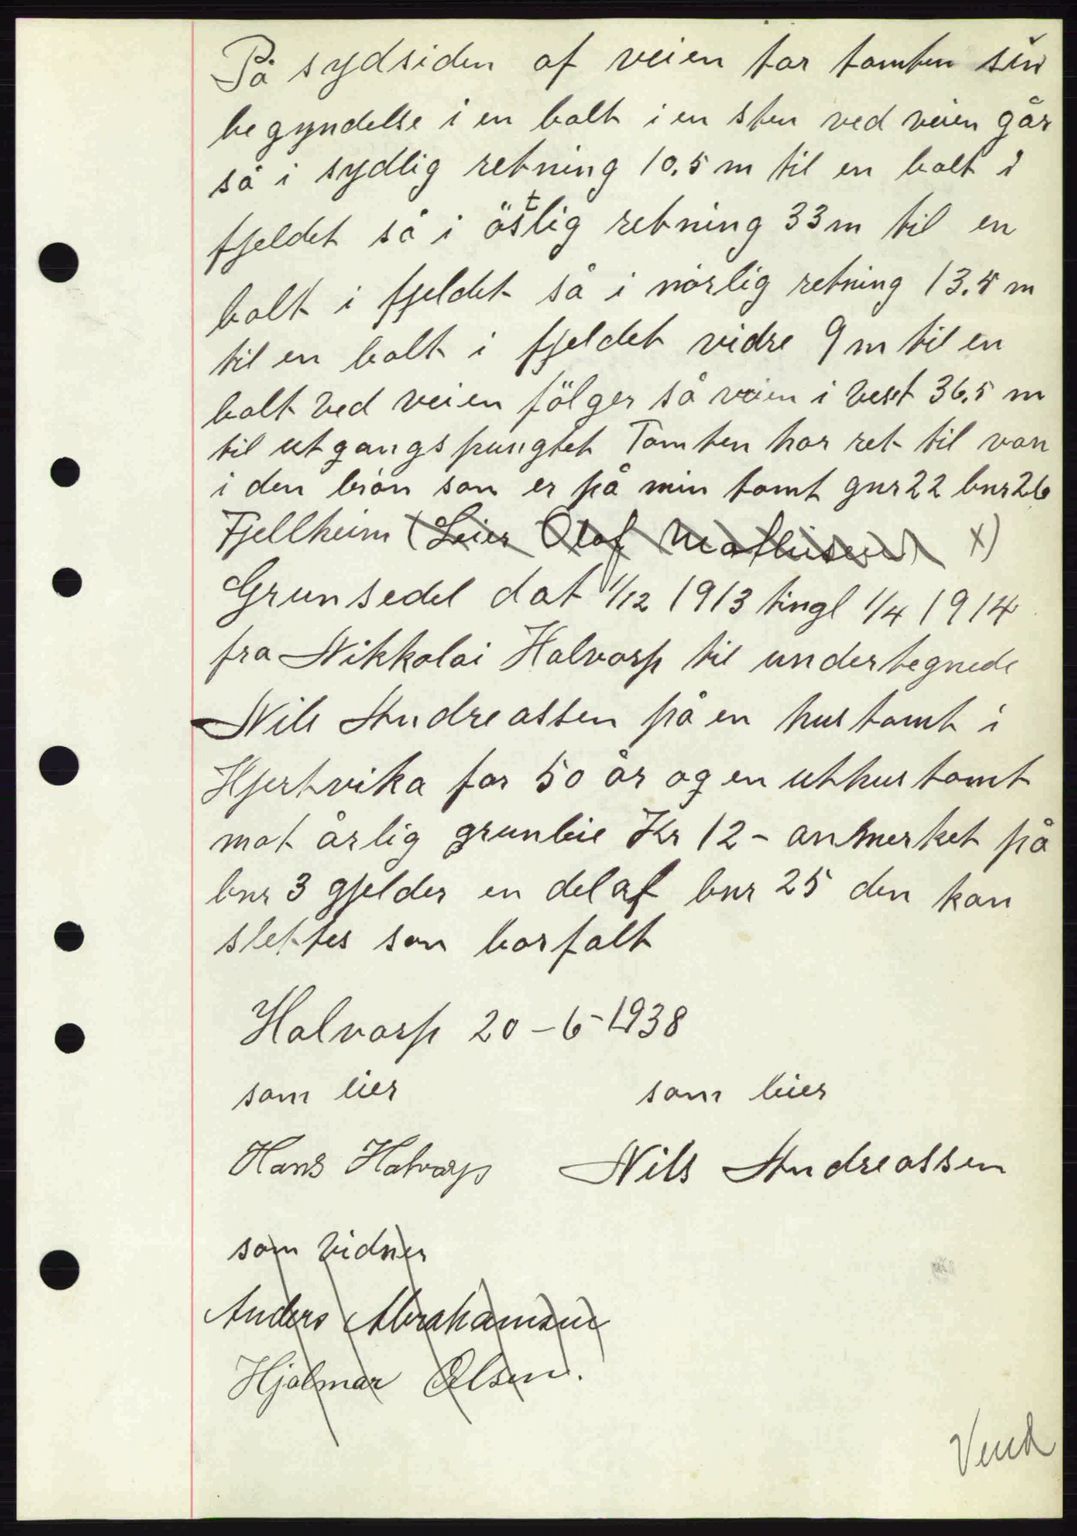 På sydsiden af veien tar tomten sin
begyndelse i en bolt i en sten ved veien går
så i sydlig retning 10.5 m til en bolt i
fjeldet så i östlig retning 33 m til en
bolt i fjeldet så i nörlig retning 13.5 m
til en bolt i fjeldet vidre 9 m til en
bolt ved veien fölger så veien i vest 36,5 m
til utgangspungtet Tomten har ret til van
i den brön som er på min tomt gnr 22 bnr 26
Fjellheim (Leier Olaf Mathisen) x)
Grunsedel dat 1/12 1913 tingl 1/4 1914
fra Nikkolai Halvorsp til undertegnede
Nils Andreassen på en hustomt i
Hjertvika for 50 år og en uthustomt
mot årlig grunleie Kr 12 - anmerket på
bnr 3 gjelder en del af bnr 25 den kan
slettes som borfalt
Halvorsp 20-6-1938
som eier som leier
Hans Halvorsp Nils Andreassen
som vidner
Anders Abrahamsen
Hjalmar Olsen.
Vend